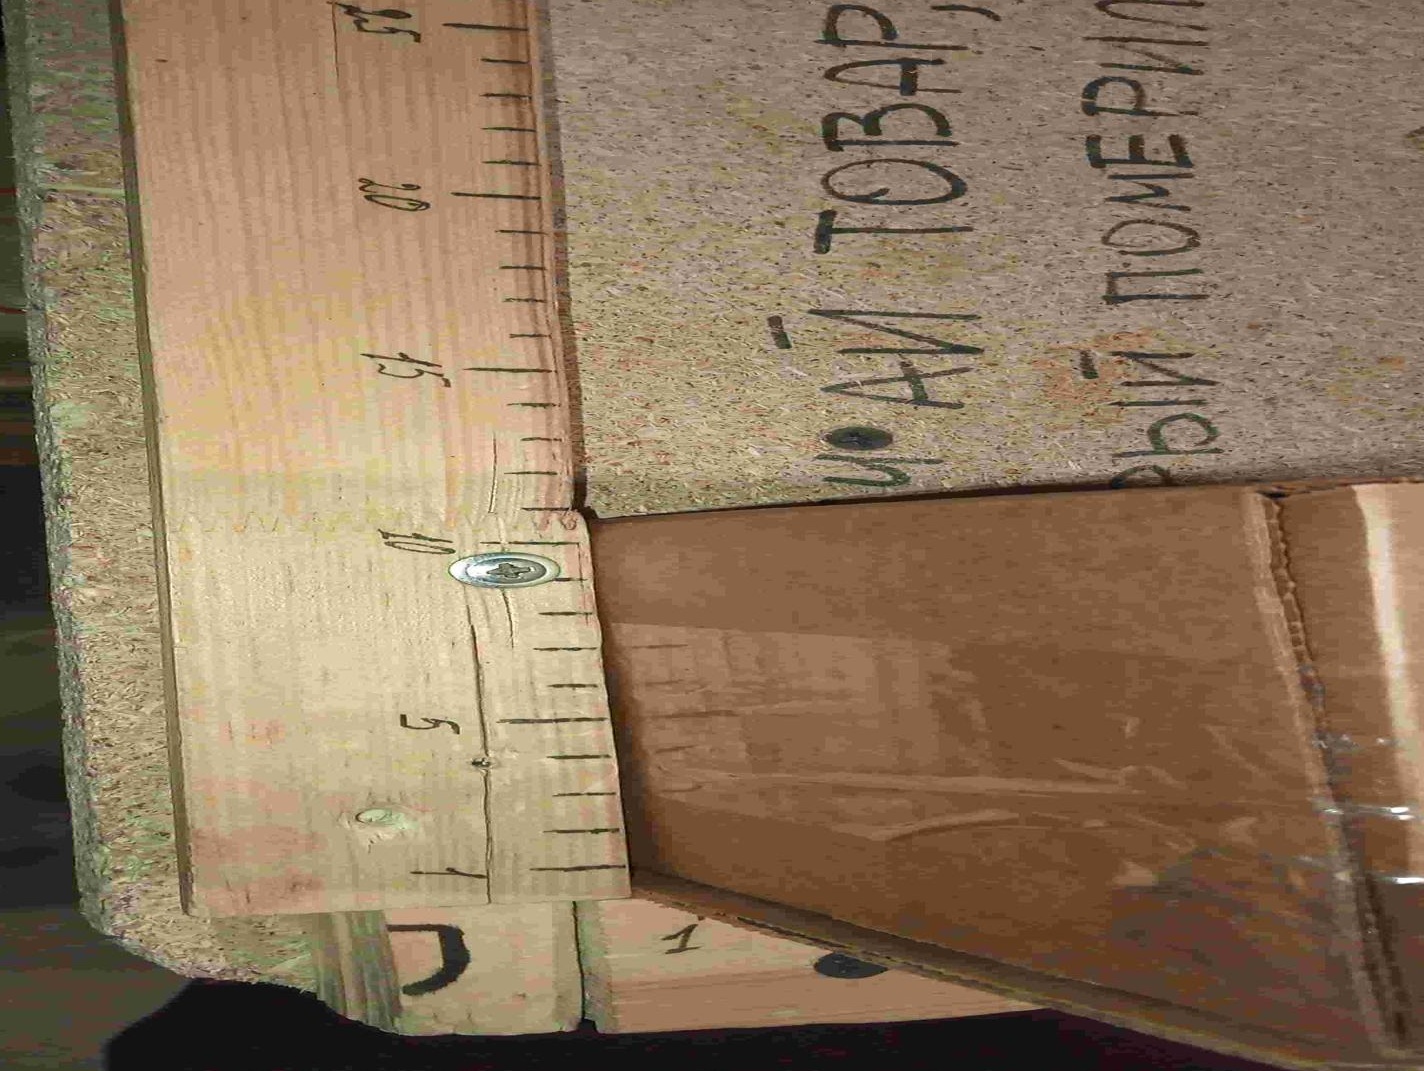 1
5
10
15
20
25
АЙ ТОВАР,
ЫЙ ПОМЕРИЛ
1